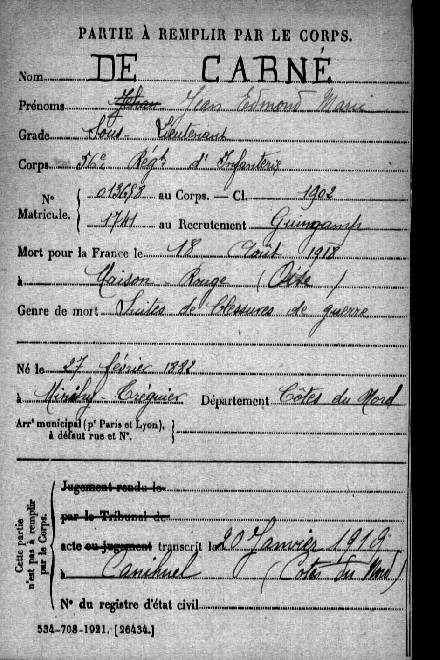 PARTIE À REMPLIR PAR LE CORPS.
Nom DE CARNÉ
Prénoms Jean Edmond Marie
Grade Sous-Lieutenant
Corps 36e Régt d'Infanterie
N° Matricule. { 013683 au Corps. — Cl. 1902
1741 au Recrutement Guingamp
Mort pour la France le 18 Août 1918
à Maison-Rouge (Oise)
Genre de mort Suites de blessures de guerre
Né le 27 février 1882
à Minihy Tréguier Département Côtes du Nord
Arrt municipal (pr Paris et Lyon), à défaut rue et N°.
Cette partie n'est pas à remplir par le Corps.
Jugement rendu le
par le Tribunal de
acte ou jugement transcrit le 20 Janvier 1919
à Canihuel (Côtes du Nord)
N° du registre d'état civil
534-708-1921. [26434.]